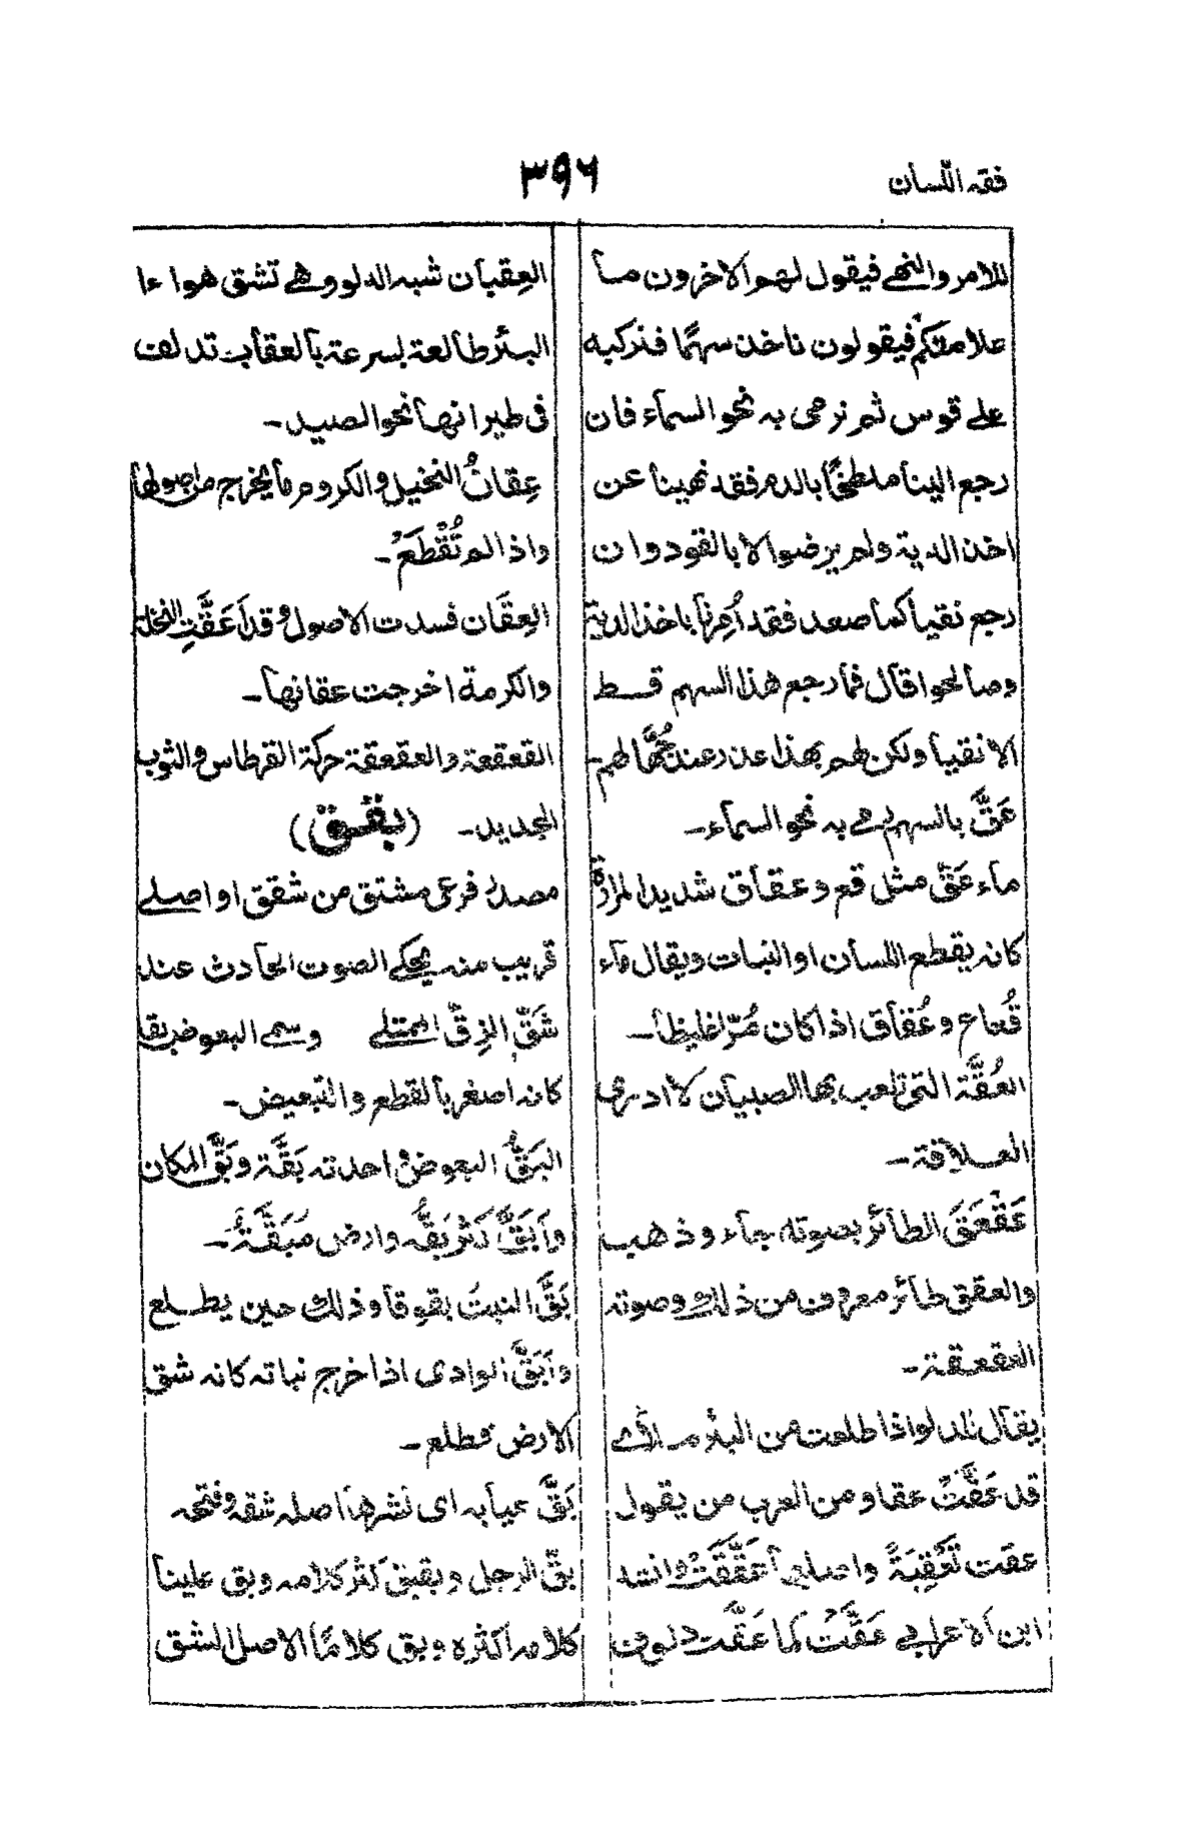 فقه اللسان
٣٩٦
للامر والنهے فيقول لهم الاخرون ما
علامتكم فيقولون ناخذ سهمًا فنركبه
علے قوس ثم نرمی به نحو السمآء فان
رجع الينا ملطخًا بالدم فقد نهينا عن
اخذ الدية ولم يرضوا الا بالقود وان
رجع نقيا كما صعد فقد اُمِرنا باخذ الدية
وصالحوا قال فما رجع هذا السهم قط
الا نقيا ولكن لهم بهذا عذر عند جُهَّالهم-
عَقَّ بالسهم رمے به نحو السمآء-
ماء عَقٌّ مثل قع وعقاق شديد المرارة
كانه يقطع اللسان او النبات ويقال مآء
قُعاع وعُقاق اذا كان مُرّا غليظا-
العُقَّة التی تلعب بها الصبيان لا ادری
العلاقة-
عَقْعَقَ الطآئر بصوته جآء وذهب
والعقق طائر معروف من ذلك وصوته
العقعقة-
يقال للدلو اذا طلعت من البئر ملأى
قد عَقَّتْ عقا ومن العرب من يقول
عقت تَعْقِيَةً واصله عَقَّقَتْ وانشد
ابن الاعرابے عَقَّتْ كما عَقَّت دلوف
العِقبان شبه الدلو وهے تشق هواءا
البئر طالعة بسرعة بالعقاب تدلف
فی طيرانها نحو الصيد-
عِقانُ النخيل والكروم ما يخرج من اصولها
واذا لم تُقْطَعْ-
العِقَان فسدت الاصول وقد اَعَقَّتِ النخلة
والكرمة اخرجت عقانها-
القعقعة والعقعقة حركة القرطاس والثوب
الجديد- (بقق)
مصدرٌ فرعی مشتق من شقق او اصلے
قريب منه يحكے الصوت الحادث عند
شَقِّ الزِقِّ الممتلے وسمے البعوض بقا
كانه اصغر بالقطع والتبعيض-
البَقُّ البعوض واحدته بَقَّة وبَقَّ المكان
واَبَقَّ كَثُر بَقُّه وارض مُبَقَّةٌ-
بَقَّ النبتُ بقوقا وذلك حين يطلع
واَبَقَّ الوادی اذا خرج نباته كانه شق
الارض فطلع-
بَقَّ عيابه ای نشرها اصله شقه وفتحه
بقّ الرجل وبقبق كثر كلامه وبق علينا
كلامه اكثره وبق كلامًا الاصل الشق